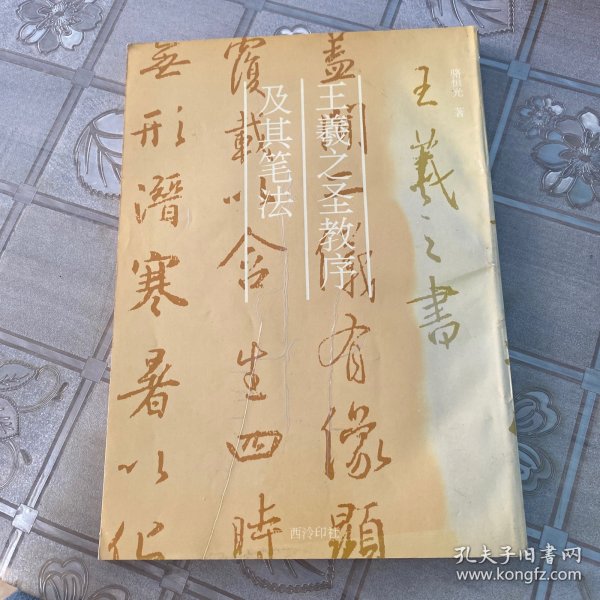 骆恒光 著
王羲之书
王羲之圣教序
及其笔法
盖闻二儀有像顯
覆載以含生四時
無形潛寒暑以化
西泠印社
孔夫子旧书网
www.kongfz.com